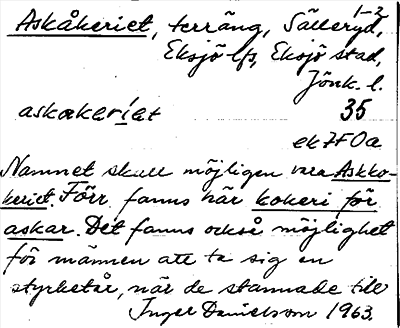 1-2
Askåkeriet, terräng, Sälleryd,
Eksjö lfs, Eksjö stad,
Jönk. l.
askakeriet 35
ek7F0a
Namnet skall möjligen vara Askko-
keriet. Förr fanns här kokeri för
askar. Det fanns också möjlighet
för männen att ta sig en
styrketår, när de stannade till
Inger Danielsson 1963.